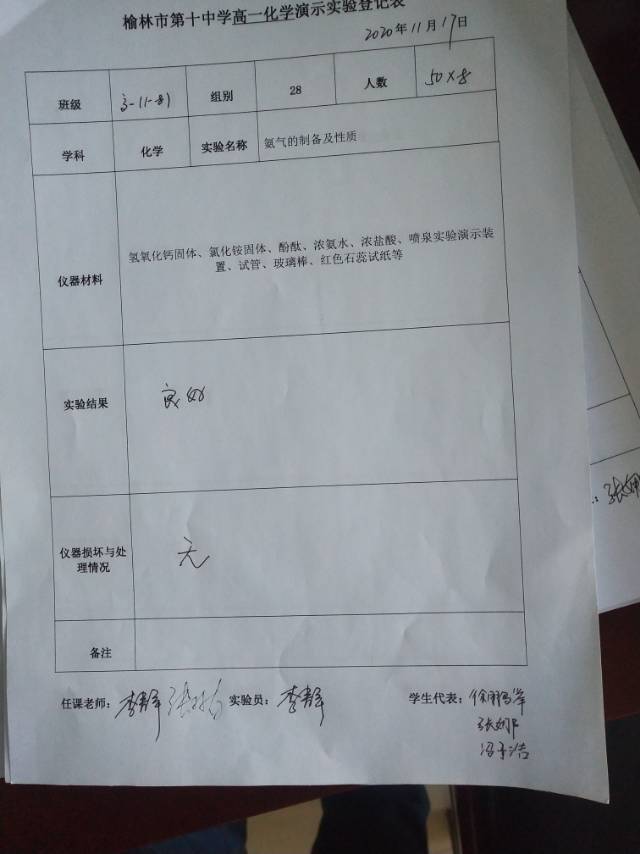 榆林市第十中学高一化学演示实验登记表
2020年11月17日
班级 高一(1-8) 组别 28 人数 50×8
学科 化学 实验名称 氨气的制备及性质
仪器材料 氢氧化钙固体、氯化铵固体、酚酞、浓氨水、浓盐酸、喷泉实验演示装
置、试管、玻璃棒、红色石蕊试纸等
实验结果 良好
仪器损坏与处
理情况 无
备注
任课老师：李静 实验员：李静 学生代表：
张娜
冯子浩
张娜